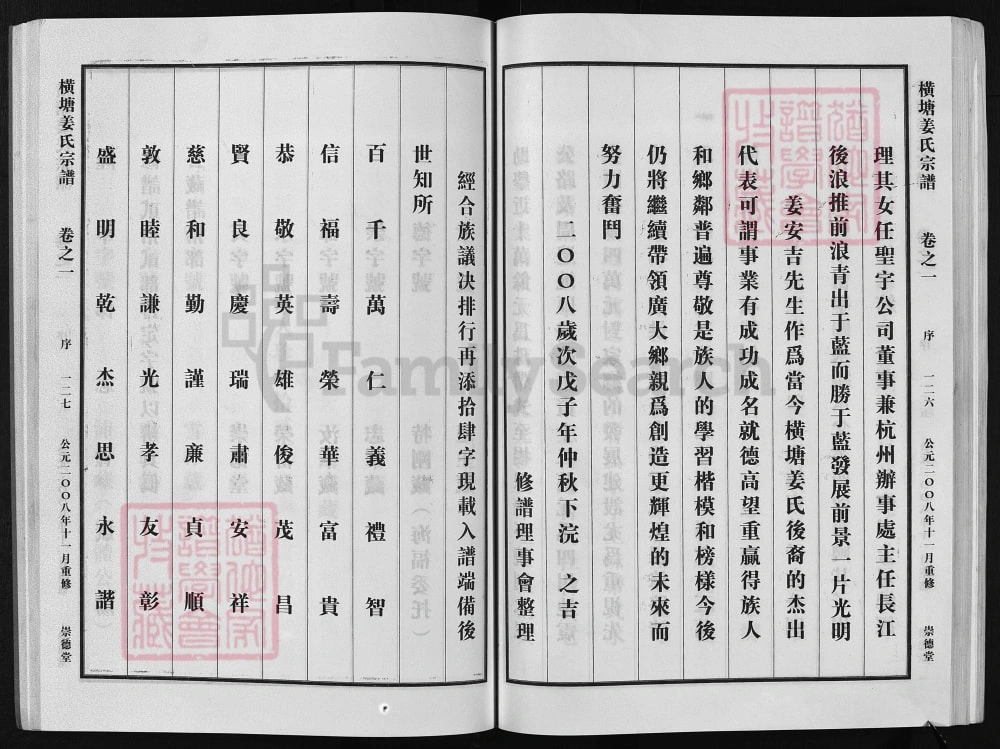 橫塘姜氏宗譜　卷之一　序　一二六　公元二〇〇八年十一月重修　崇德堂
理其女任聖宇公司董事兼杭州辦事處主任長江
後浪推前浪青出于藍而勝于藍發展前景一片光明
姜安吉先生作爲當今橫塘姜氏後裔的杰出
代表可謂事業有成功成名就德高望重贏得族人
和鄉鄰普遍尊敬是族人的學習楷模和榜樣今後
仍將繼續帶領廣大鄉親爲創造更輝煌的未來而
努力奮鬥
二〇〇八歲次戊子年仲秋下浣　之吉
修譜理事會整理
經合族議决排行再添拾肆字現載入譜端備後
世知所
百千萬仁義禮智
信福壽榮華富貴
恭敬英雄俊茂昌
賢良慶瑞肅安祥
慈和勤謹廉貞順
敦睦謙光孝友彰
盛明乾杰思永諧
橫塘姜氏宗譜　卷之一　序　一二七　公元二〇〇八年十一月重修　崇德堂
FamilySearch